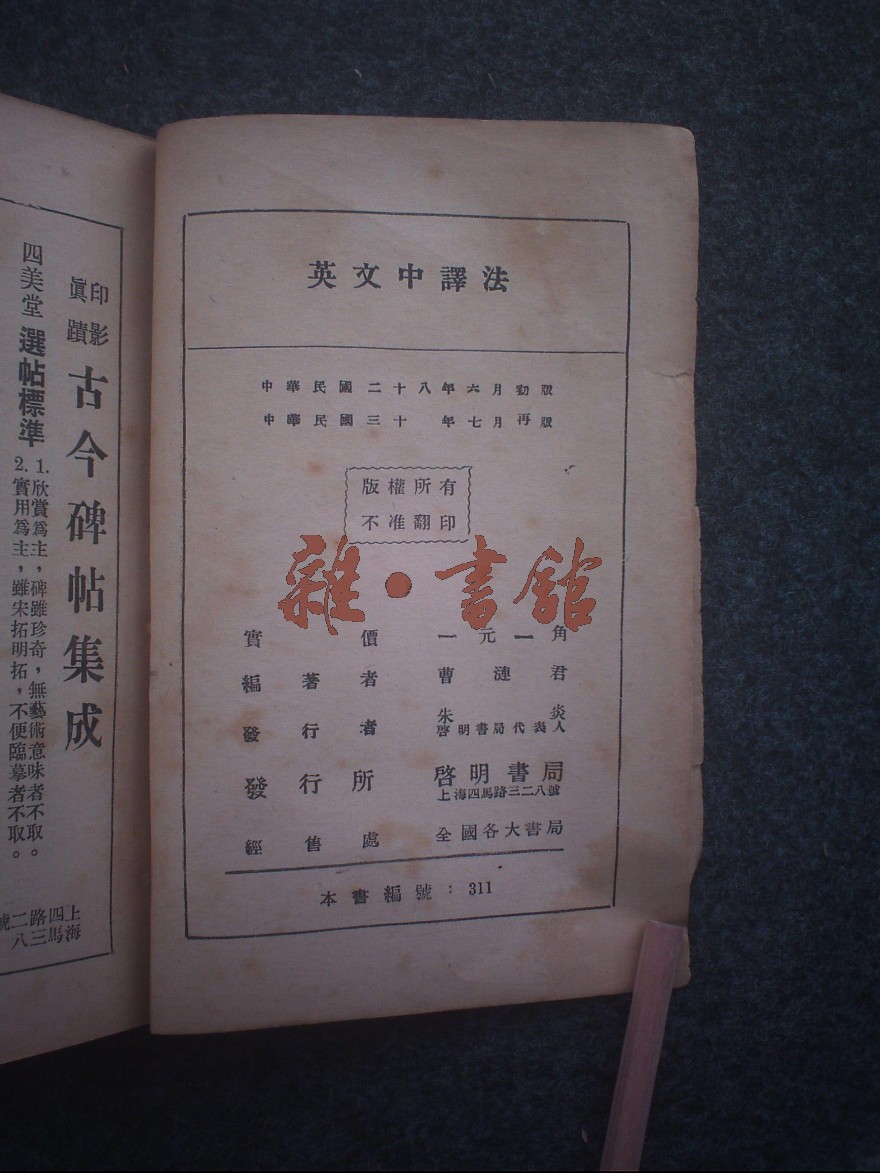 英文中譯法
中華民國二十八年六月初版
中華民國三十 年七月再版
版權所有
不准翻印
雜·書館
實價 一元一角
編著者 曹漣君
發行者 朱炎
啓明書局代表人
發行所 啓明書局
上海四馬路三二八號
經售處 全國各大書局
本書編號：311
印影
眞蹟
古今碑帖集成
四美堂 選帖標準
1.欣賞爲主，碑雖珍奇，無藝術意味者不取。
2.實用爲主，雖宋拓明拓，不便臨摹者不取。
上海四馬路三二八號